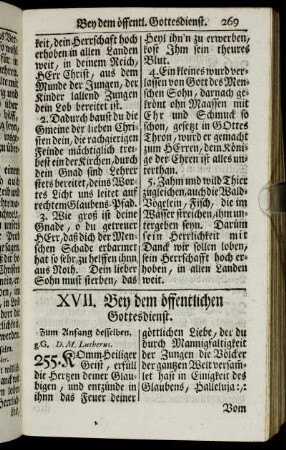 Bey dem öffentl. Gottesdienst. 269
keit, dein Herrschaft hoch
erhoben in allen Landen
weit, in deinem Reich,
HErr Christ, aus dem
Munde der Jungen, der
Kinder lallend Zungen
dein Lob bereitet ist.
2. Dadurch baust du die
Gmeine der lieben Chri-
sten dein, die rachgierigen
Feinde mächtiglich trei-
best ein der Kirchen, durch
dein Gnad sind Lehrer
stets bereitet, deins Wor-
tes Licht uns leitet auf
rechtem Glaubens-Pfad.
3. Wie groß ist deine
Gnade, o du getreuer
HErr, daß dich der Men-
schen Schade erbarmet
hat so sehr, zu helffen ihn
aus Noth. Dein lieber
Sohn must sterben, das
Heyl ihn'n zu erwerben,
kost Ihm sein theures
Blut.
4. Ein kleines wurd ver-
lassen von Gott des Men-
schen Sohn, darnach ge-
krönt ohn Maassen mit
Ehr und Schmuck so
schon, gesetzt in GOttes
Thron, wird er gemacht
zum HErren, dem Köni-
ge der Ehren ist alles un-
terthan.
5. Zahm und wild Thier
zugleichen, auch die Wald-
Vögelein, Fisch, die im
Wasser streichen, ihm un-
tergeben seyn. Darum
sein Herrlichkeit mit
Danck wir sollen loben,
sein Herrschafft hoch er-
hoben, in allen Landen
weit.
XVII. Bey dem öffentlichen
Gottesdienst.
Zum Anfang desselben.
gG. D. M. Lutherus.
255. KOmm Heiliger
Geist, erfüll
die Hertzen deiner Glau-
bigen, und entzünde in
ihnn das Feuer deiner
göttlichen Liebe, der du
durch Mannigfaltigkeit
der Zungen die Völcker
der gantzen Welt versam-
let hast in Einigkeit des
Glaubens, Halleluja :,:
Vom